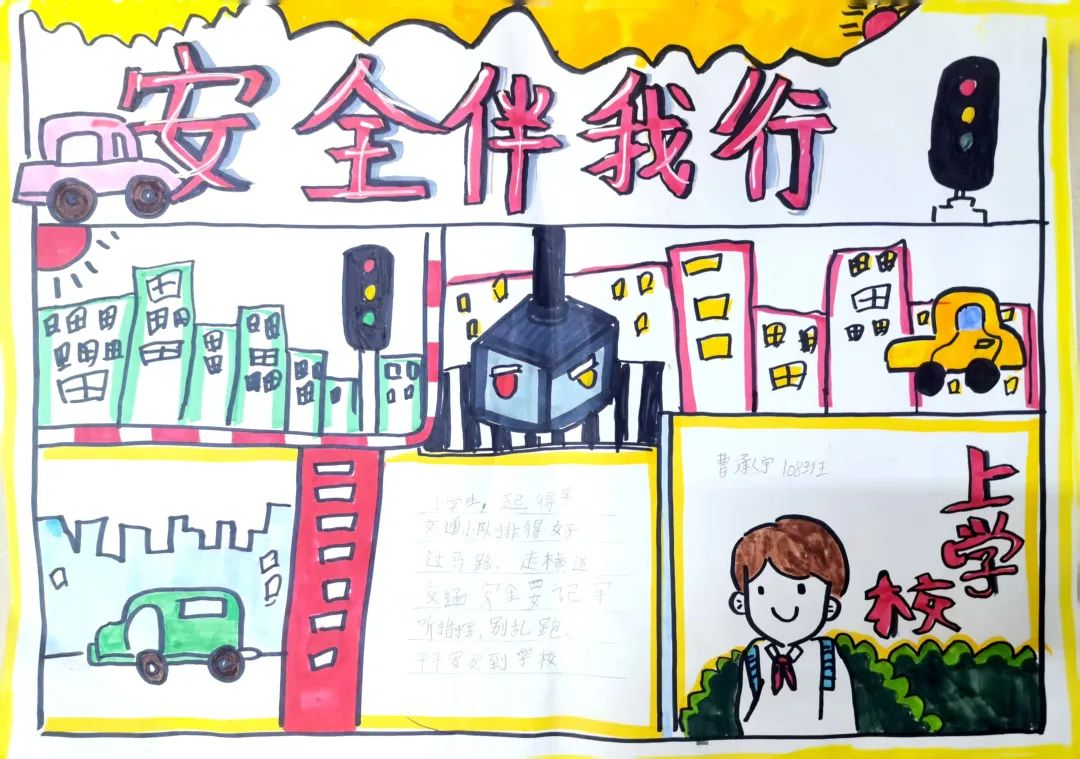 安全伴我行
小学生，起得早
交通小队排得好
过马路，走横道
交通安全要记牢
听指挥，别乱跑，
平平安安到学校
曹 宇 108班
上学校